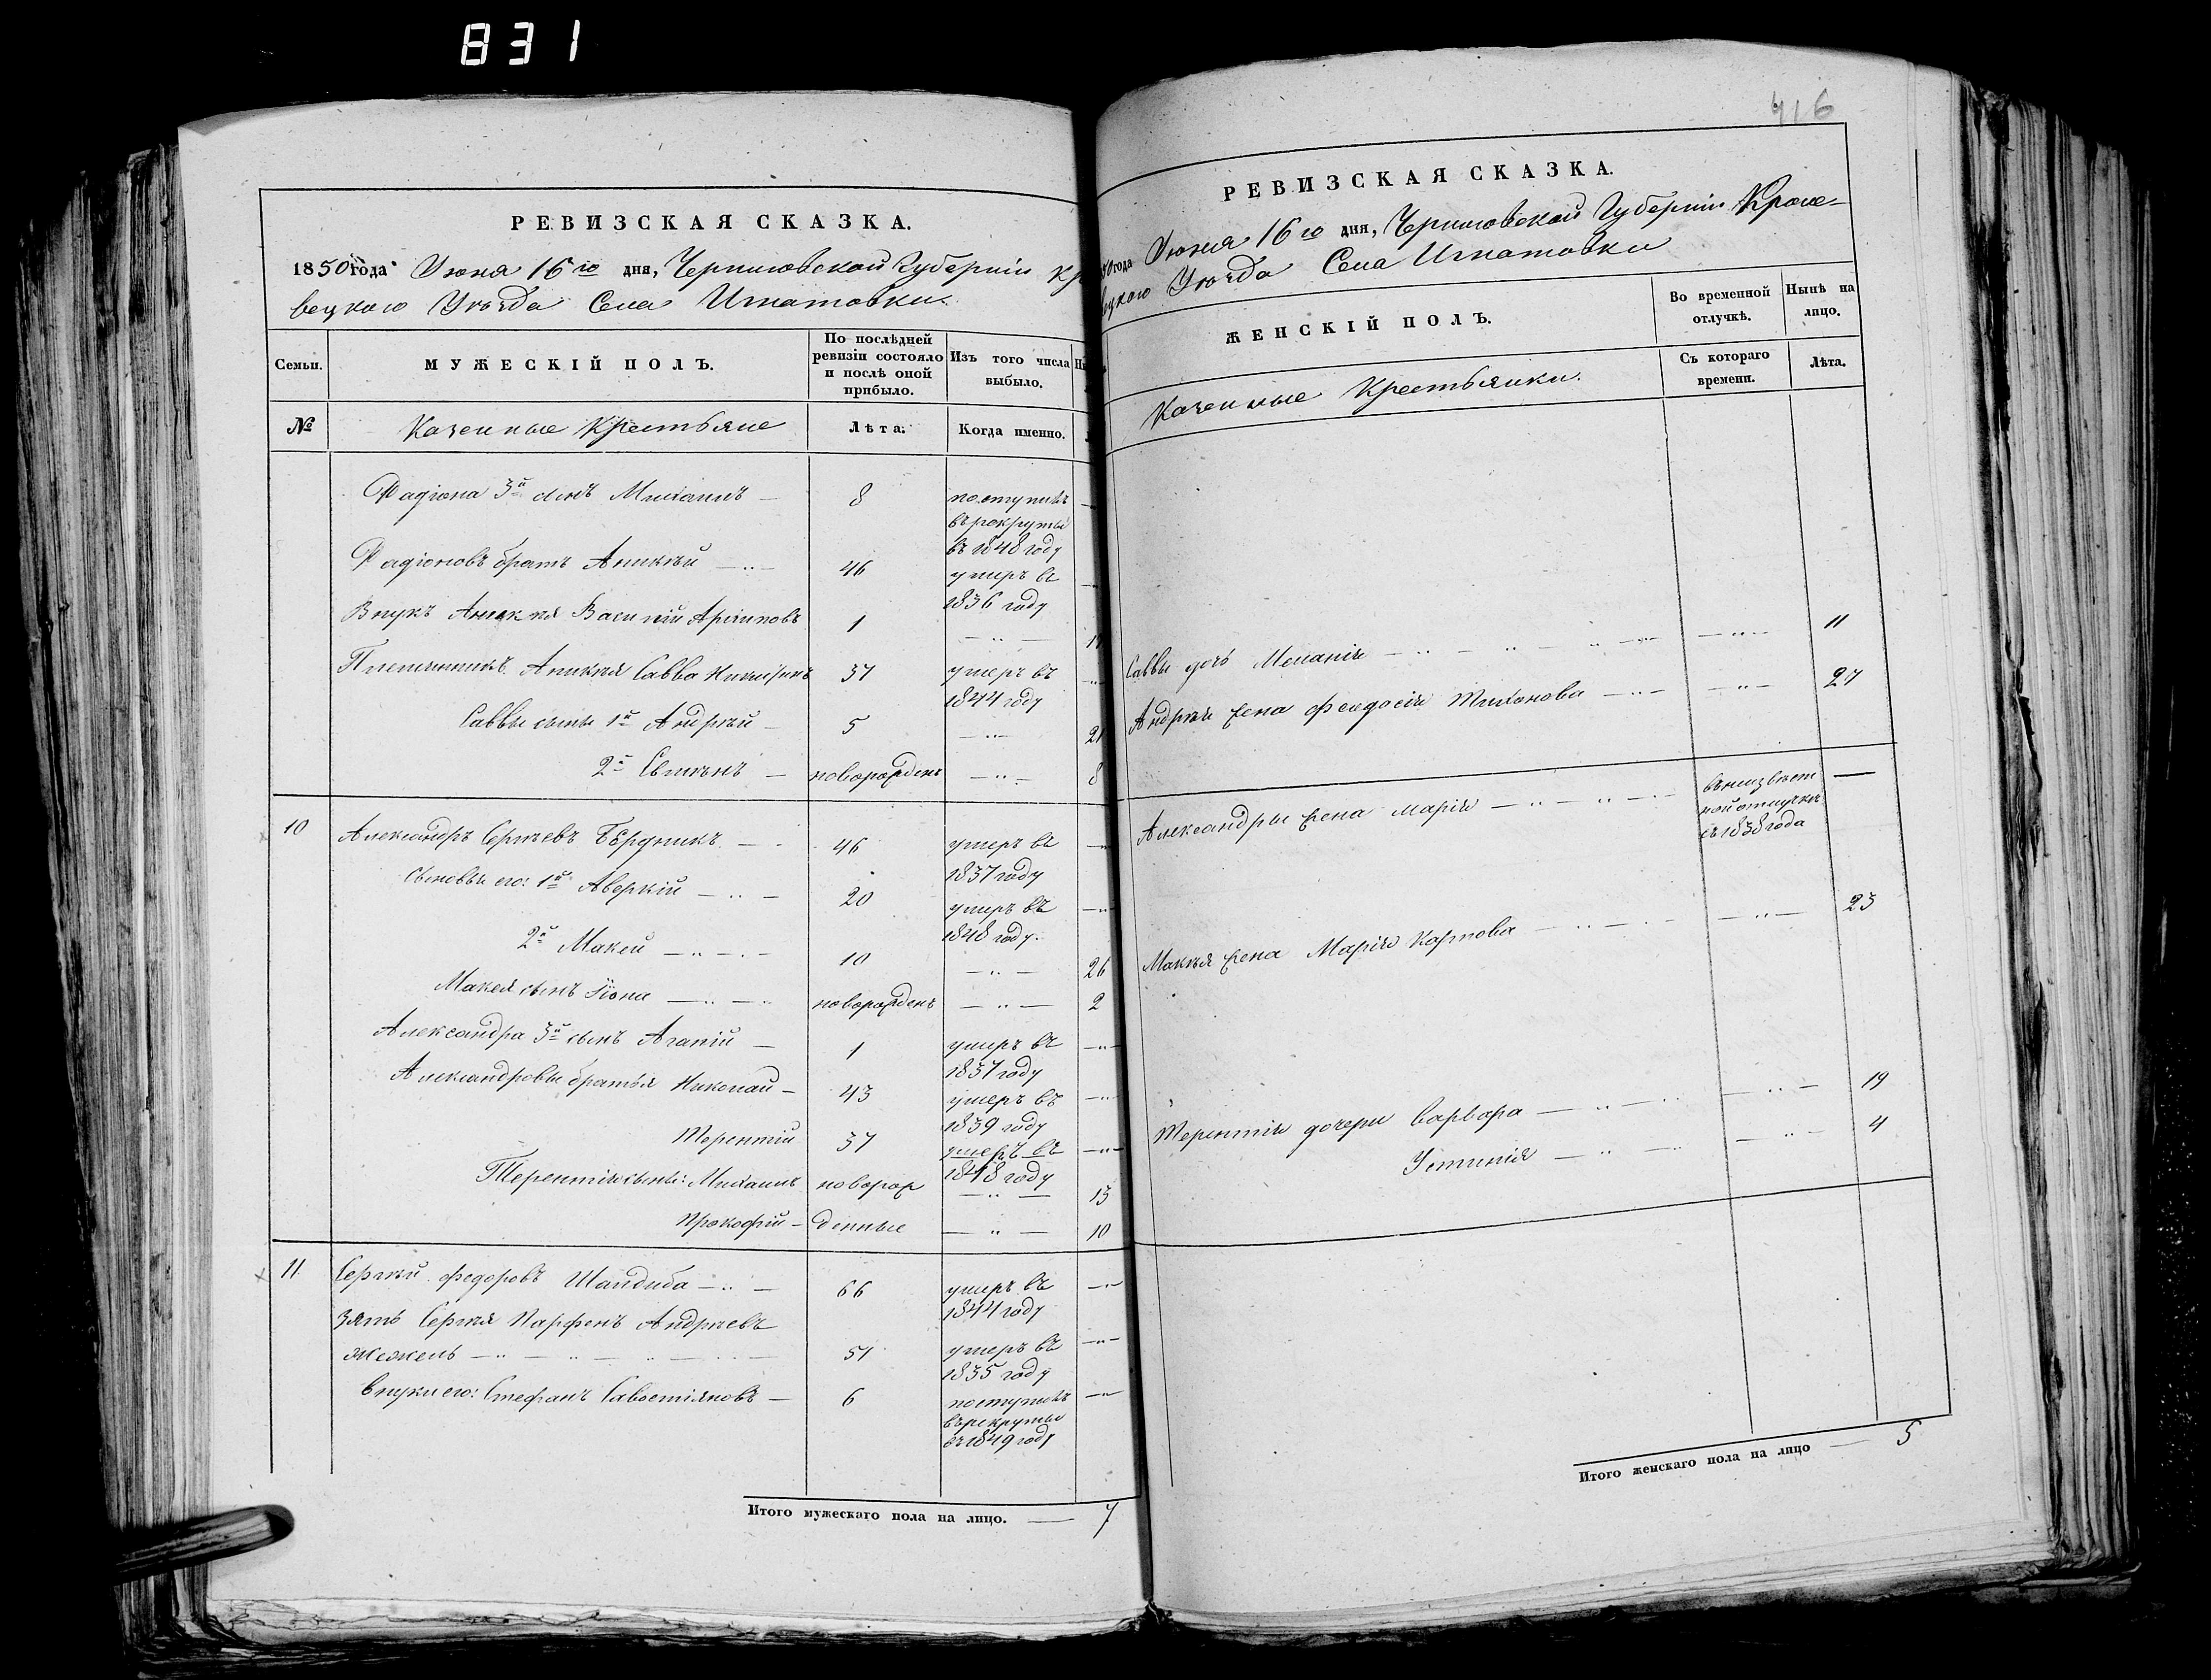 831
РЕВИЗСКАЯ СКАЗКА.
1850 года Июня 16го дня, Черниговской Губерніи Кр
вецкаго Уѣзда Села Игнатовки.
Семьи.
МУЖЕСКІЙ ПОЛЪ.
По послѣдней ревизіи состояло и послѣ оной прибыло.
Изъ того числа выбыло.
№
Казенные Крестьяне
Лѣта.
Когда именно.
Фадіона 3й сынъ Михаилъ — 8 поступилъ
въ рекруты
въ 1848 году
Фадіоновъ братъ Аникѣй — 46 умеръ въ
1836 году
Внукъ Аникѣя Василій Архиповъ 1
Племянникъ Аникѣя Савва Никифоровъ 37 умеръ въ
1844 году
Саввы сыны 1й Андрѣй — 5 — 21
2й — новорожденъ — 8
10 Александръ Сергѣевъ Бердникъ — 46 умеръ въ
1837 году
Сыновья его: 1й Аверкій — 20 умеръ въ
1848 году.
2й Макей — 10 — 26
Макея сынъ Іона — новорожденъ — 2
Александра 3й сынъ Агапій — 1 умеръ въ
1837 году
Александровы братья Николай — 43 умеръ въ
1839 году
Терентій 37 умеръ въ
1848 году
Терентія сыны: Михаилъ новорож — 13
Прокофій — денные — 10
11 Сергѣй Федоровъ Шандыба — 66 умеръ въ
1844 году
Зять Сергѣя Парфенъ Андрѣевъ
Жежель — 51 умеръ въ
1835 году
Внуки его: Стефанъ Савостіяновъ — 6 поступилъ
въ рекруты
въ 1849 году
Итого мужескаго пола на лицо. — 7
416
РЕВИЗСКАЯ СКАЗКА.
50 года Июня 16го дня, Черниговской Губерніи Кроле-
вецкаго Уѣзда Села Игнатовки
ЖЕНСКІЙ ПОЛЪ.
Во временной отлучкѣ.
Нынѣ на лицо.
Казенные Крестьянки.
Съ котораго времени.
Лѣта.
Саввы дочь Меланія — 11
Андрѣя жена Феодосія Тихонова — 27
Александры жена Марія — въ неизвѣст
ной отлучкѣ
съ 1838 года
Макѣя жена Марія Карпова — 23
Терентія дочери Варвара — 19
Устинія — 4
Итого женскаго пола на лицо — 5